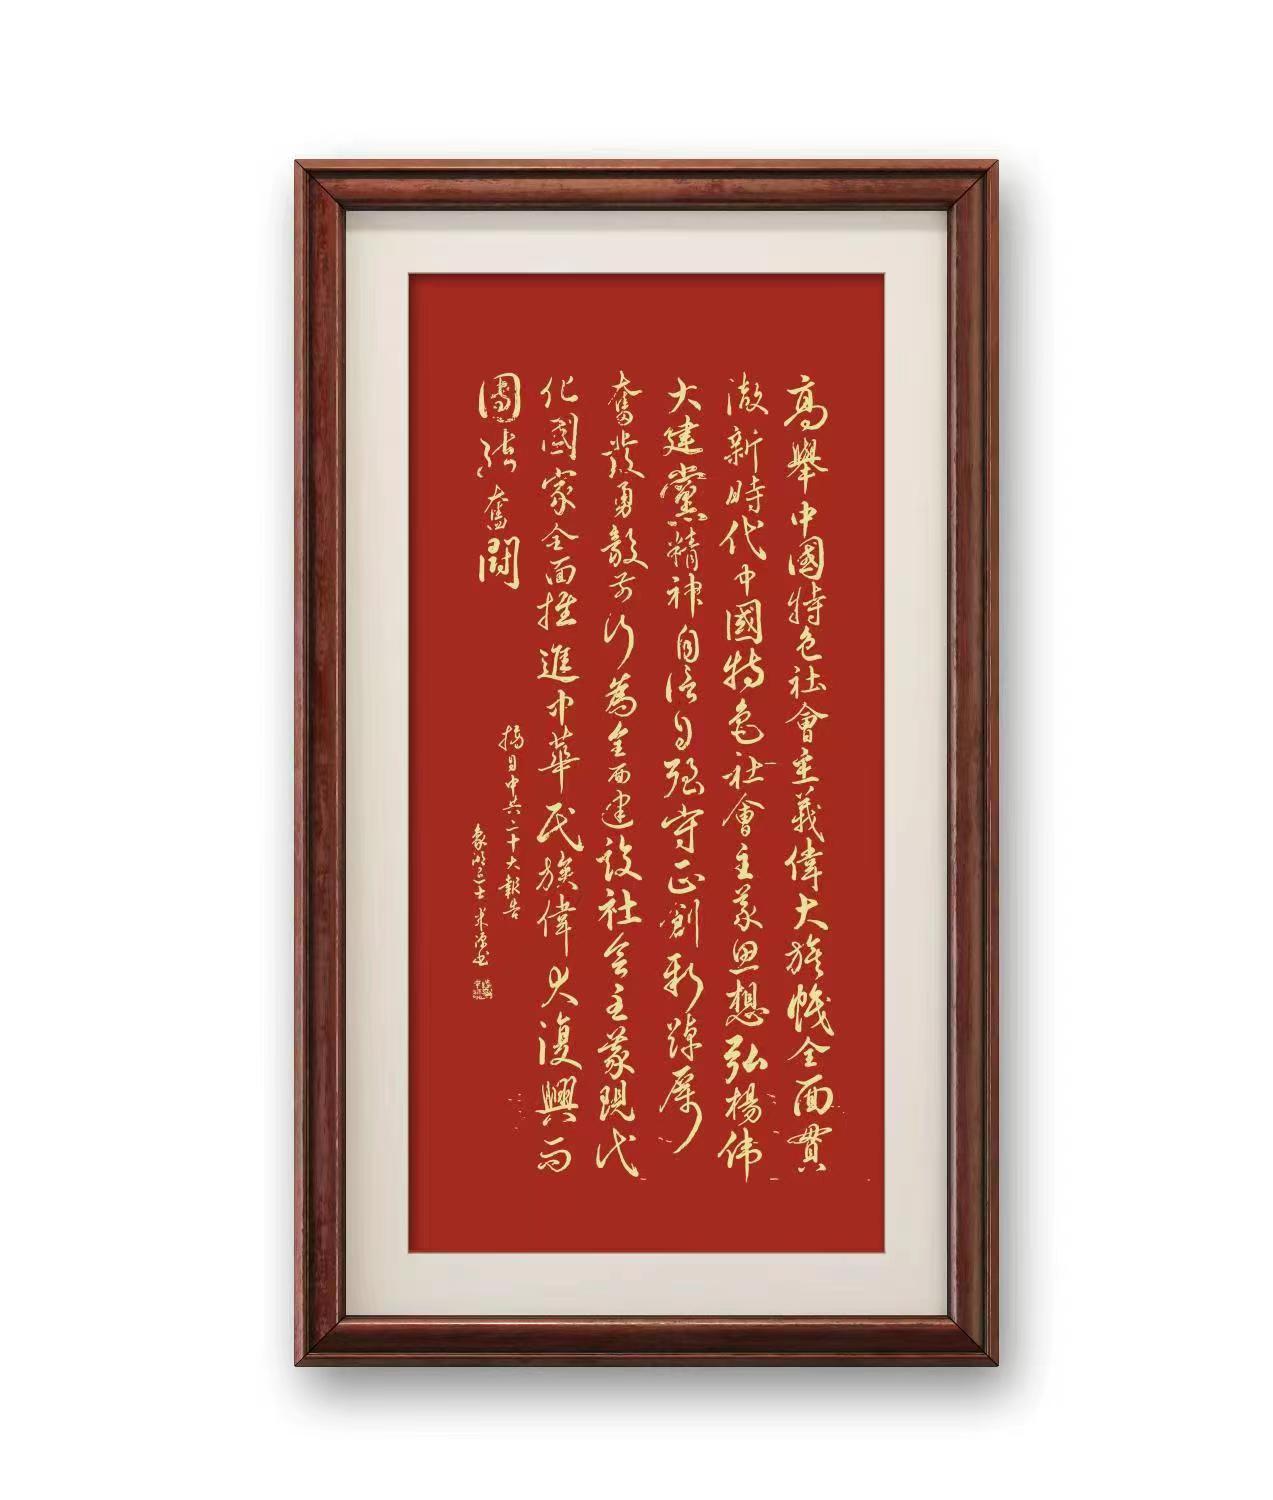 高舉中國特色社會主義偉大旗幟全面貫
澈新時代中國特色社會主義思想弘楊伟
大建黨精神自信自强守正創新踔厲
奮發勇毅前行為全面建設社会主義現代
化國家全面推進中華民族偉大復興而
團结奮鬪
摘自中共二十大報告